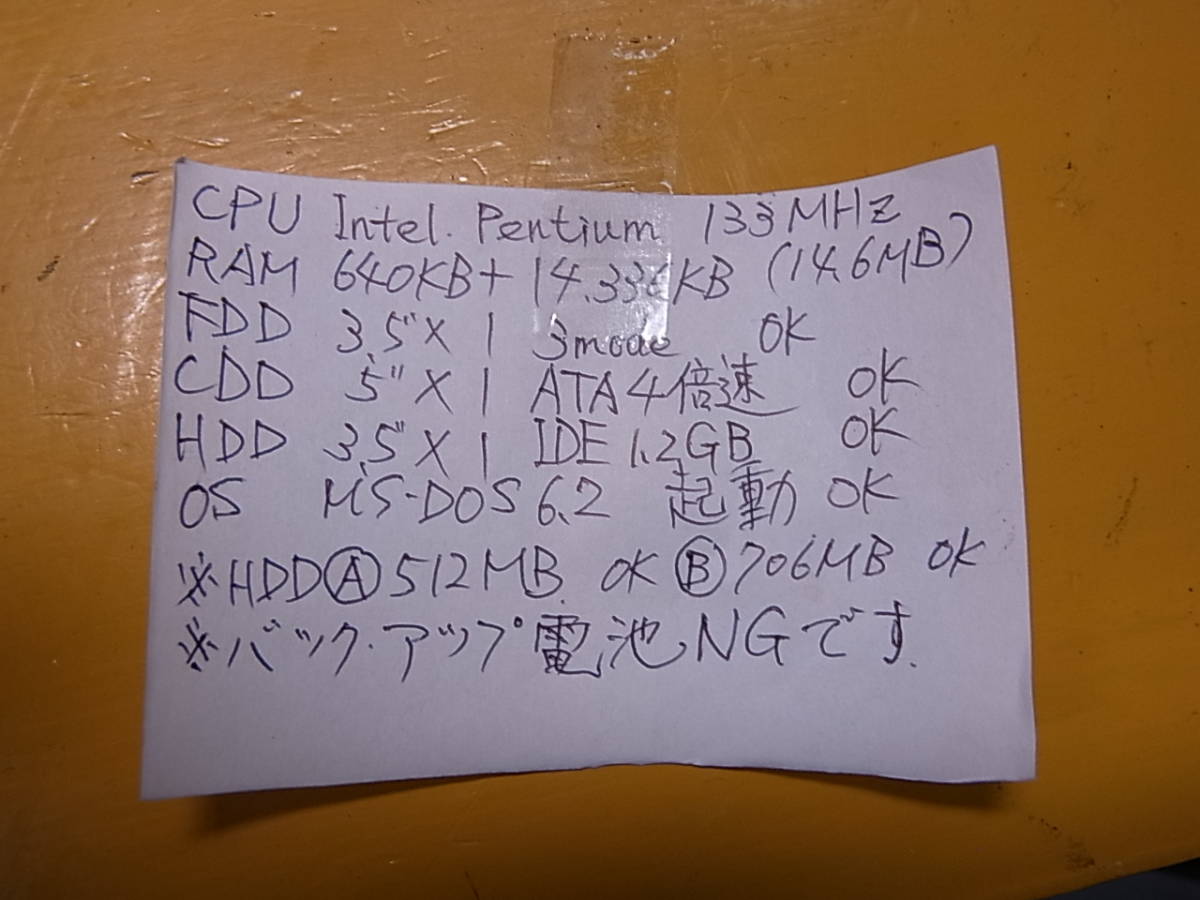 CPU Intel. Pentium 133MHz
RAM 640KB+ 14.336KB (14.6MB)
FDD 3.5"×1 3mode OK
CDD 5"×1 ATA4倍速 OK
HDD 3.5"×1 IDE 1.2GB OK
OS MS-DOS 6.2 起動 OK
※HDDⒶ512MB. OK Ⓑ706MB OK
※バック・アップ電池NGです.